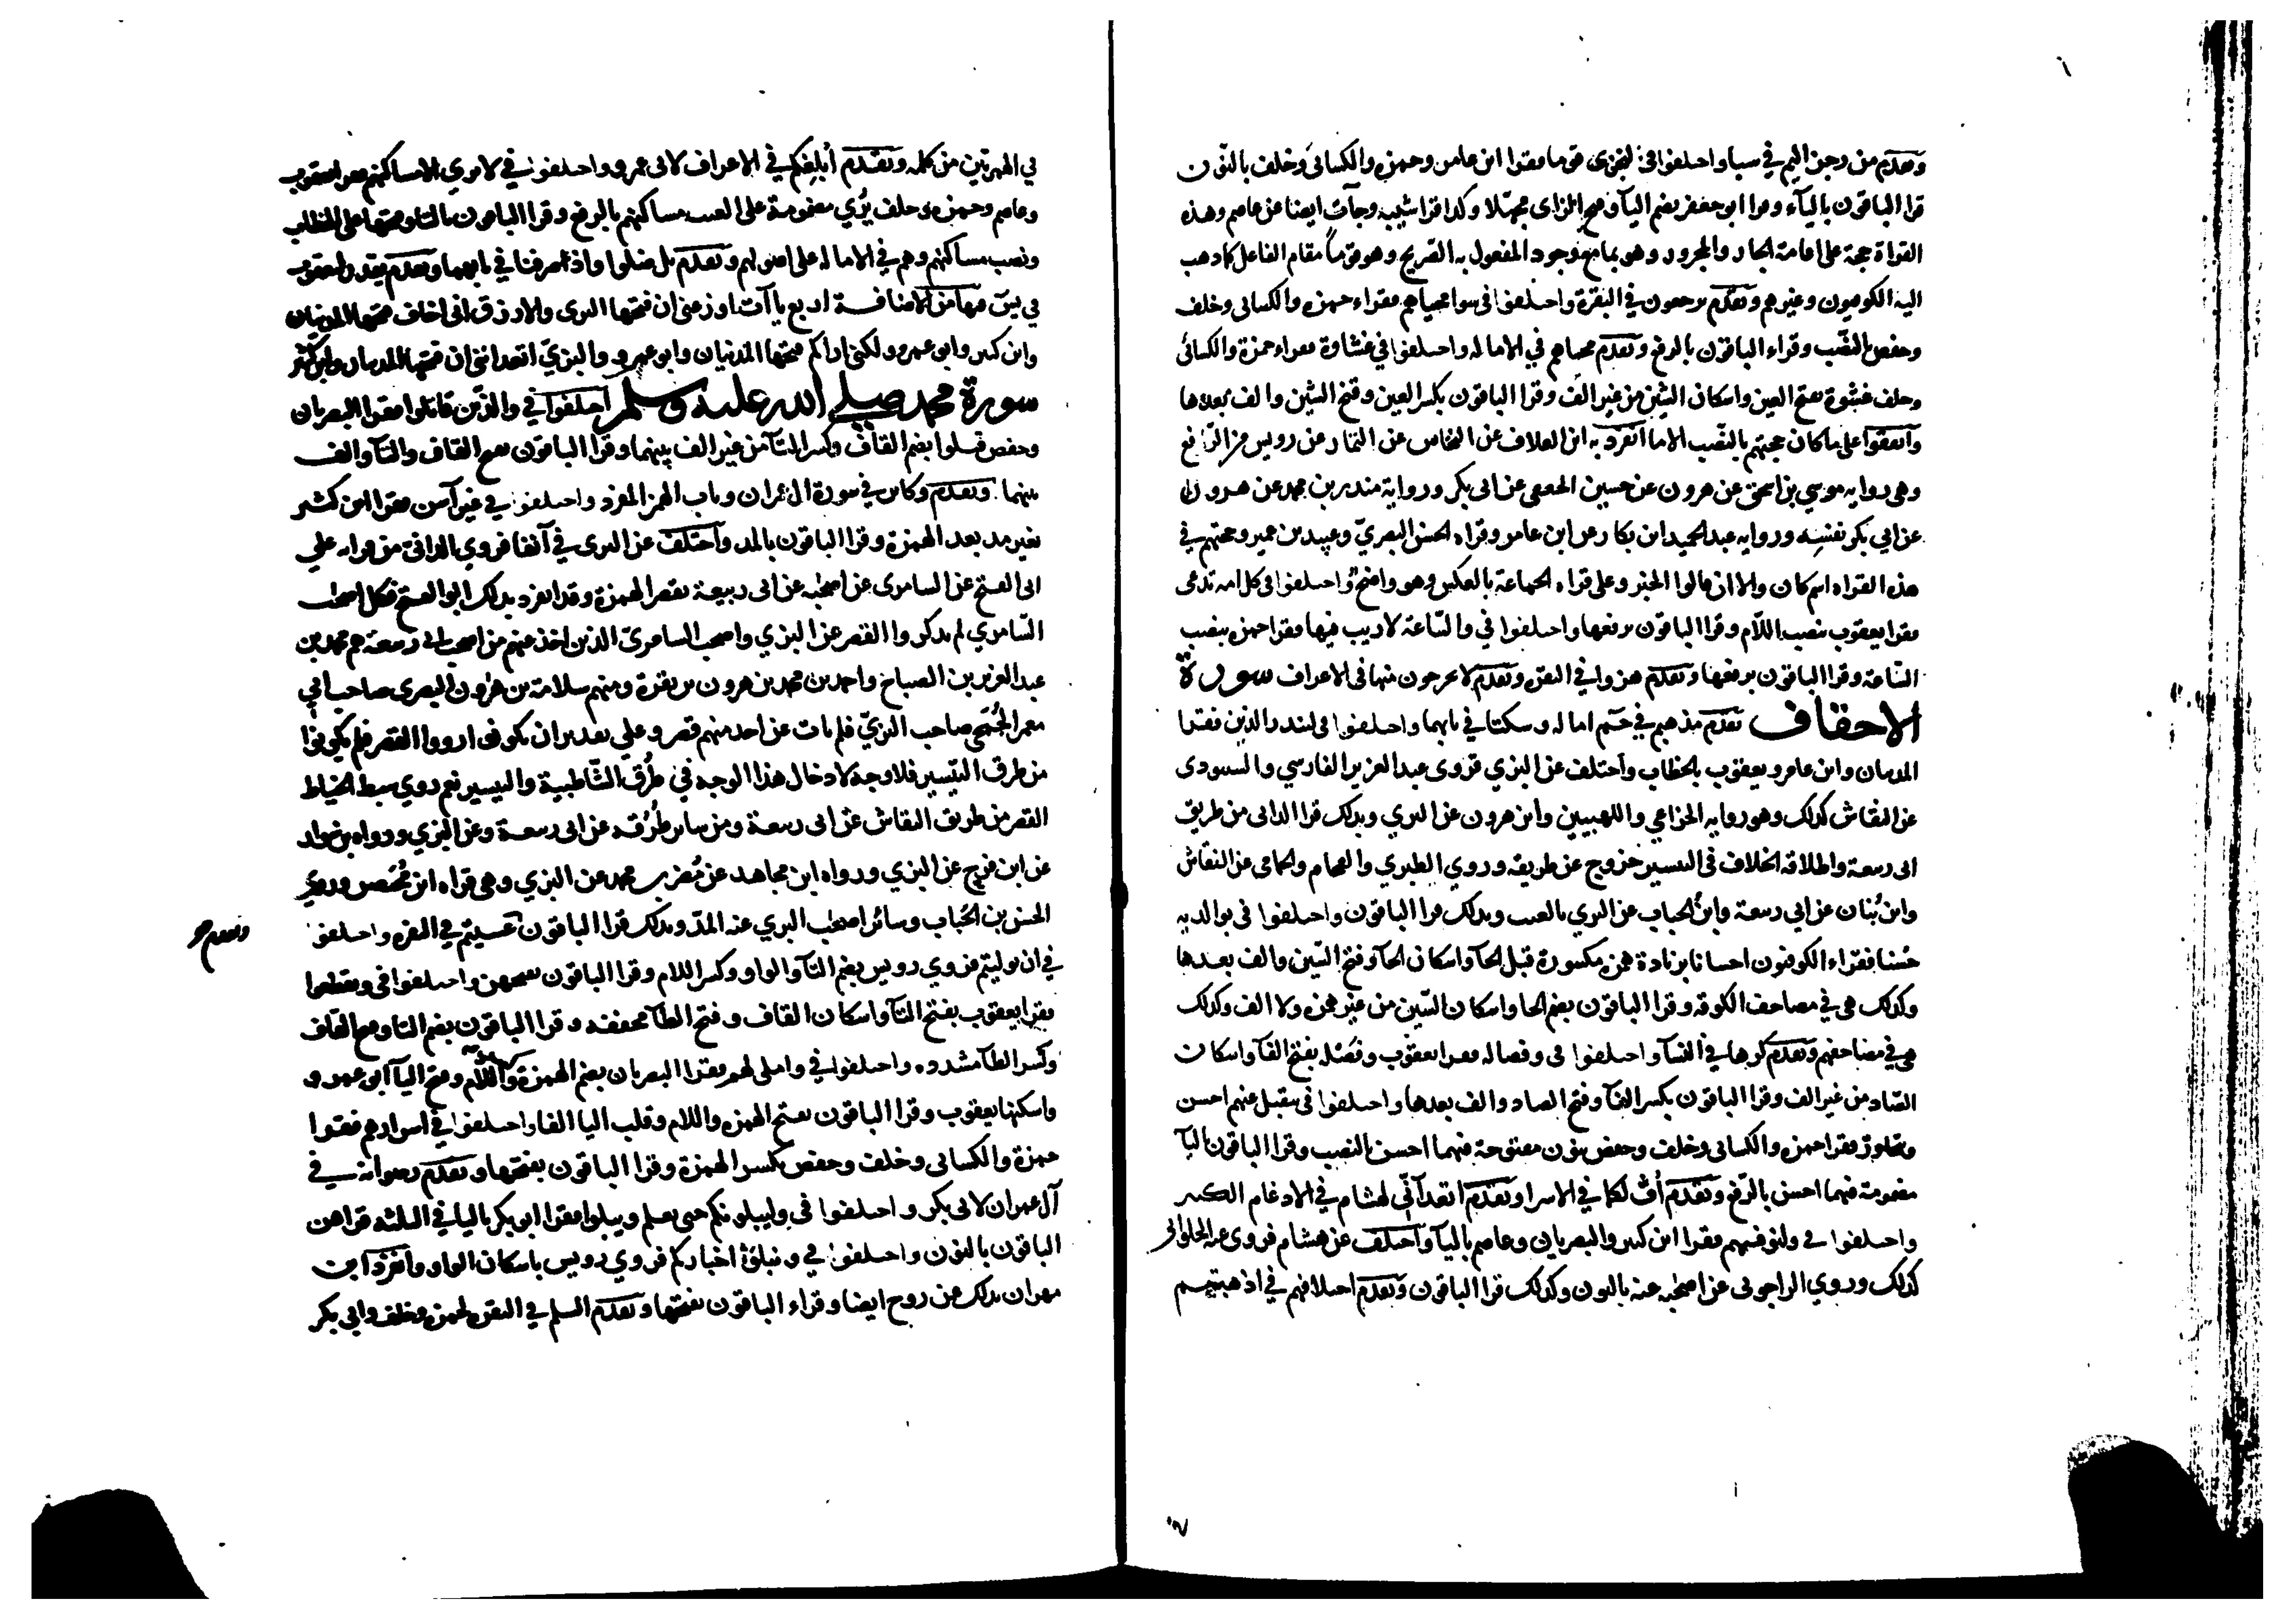 وتقدم من رجز اليم في سبا واختلفوا في ليجزى قوما فقرا ابن عامر وحمزة والكسائي وخلف بالنون
قرا الباقون بالياء وقرا ابو جعفر بضم اليا وفتح الزاى مجهلا وكذا قرا شيبه وجات ايضا عن عاصم وهذه
القراة حجة على اقامة الجار والمجرور وهو بما مع وجود المفعول به الصريح وهو قوما مقام الفاعل كما ذهب
اليه الكوفيون وغيرهم وتقدم ترجعون في البقرة واختلفوا في سوا محياهم فقراء حمزه والكسائى وخلف
وحفص بالنصب وقراء الباقون بالرفع وتقدم محياهم في الاماله واختلفوا في غشاوة فقراء حمزة والكسائى
وخلف غشوة بفتح الغين واسكان الشين من غير الف وقرا الباقون بكسر الغين وفتح الشين والف بعدها
واتفقوا على ما كان حجتهم بالنصب الا ما انفرد به ابن العلاف عن النخاس عن التمار عن رويس من الرفع
وهى روايه موسي بن اسحق عن هرون عن حسين الجعفى عن ابى بكر ورواية منذر بن محمد عن هرون
عن ابي بكر نفسه وروايه عبد الحميد ابن بكار عن ابن عامر وقراه الحسن البصري وعبيد بن عمير وحجتهم في
هذه القراه اسم كان والا ان قالوا الخبر وعلى قراء الجماعة بالعكس وهو واضح واختلفوا في كل امه تدعى
فقرا يعقوب بنصب اللام وقرا الباقون برفعها واختلفوا في والساعة لا ريب فيها فقرا حمزه بنصب
الساعة وقرا الباقون برفعها وتقدم هزوا في البقره وتقدم لا يخرجون منها في الاعراف سورة
الاحقاف تقدم مذهبهم في حم اماله وسكتا في بابهما واختلفوا في لينذر الذين فقرا
المدنيان وابن عامر ويعقوب بالخطاب واختلف عن البزي فروى عبد العزيز الفارسي والشنبوذى
عن النقاش كذلك وهو روايه الخزاعي واللهبيين وابن هرون عن البزي وبذلك قرا الدانى من طريق
ابى ربيعة واطلاقه الخلاف في التيسير خروج عن طريقه وروي الطبري والفحام والحمامى عن النقاش
وابن بنان عن ابي ربيعة وابن الحباب عن البزي بالغيب وبذلك قرا الباقون واختلفوا في بوالديه
حسنا فقراء الكوفيون احسانا بزيادة همزه مكسورة قبل الحا واسكان الحا وفتح السين والف بعدها
وكذلك هى في مصاحف الكوفه وقرا الباقون بضم الحا واسكان السين من غير همزه ولا الف وكذلك
هى في مصاحفهم وتقدم كرها في النسا واختلفوا في وفصاله فقرا يعقوب وفصله بفتح الفا واسكان
الصاد من غير الف وقرا الباقون بكسر الفا وفتح الصاد والف بعدها واختلفوا في يتقبل عنهم احسن
ويتجاوز فقرا حمزه والكسائى وخلف وحفص بنون مفتوحة فيهما احسن بالنصب وقرا الباقون باليا
مضمومة فيهما احسن بالرفع وتقدم اف لكما في الاسرا وتقدم اتعدانى لهشام في الادغام الكبير
واختلفوا في ولنوفيهم فقرا ابن كثير والبصريان وعاصم باليا واختلف عن هشام فروى عنه الحلوانى
كذلك وروي الداجونى عن اصحابه عنه بالنون وكذلك قرا الباقون وتقدم اختلافهم في اذهبتم
في الهمزتين من كلمه وتقدم أبلغكم في الاعراف لابى عمرو واختلفوا في لا يري الا مساكنهم فقرا يعقوب
وعاصم وحمزه وخلف يري مضمومة على الغيب مساكنهم بالرفع وقرا الباقون بالتا وفتحها على الخطاب
ونصب مساكنهم وهم في الاماله على اصولهم وتقدم بل ضلوا واذ صرفنا في بابهما وتقدم يقدر ليعقوب
في يس فيها من الاضافة اربع يآت اوزعنى ان فتحها البزى والازرق انى اخاف فتحها المدنيان
وابن كثير وابو عمرو ولكنى اراكم فتحها المدنيان وابو عمرو والبزي اتعداننى ان فتحها المدنيان وابن كثير
سورة محمد صلى الله عليه وسلم اختلفوا في والذين قاتلوا فقرا البصريان
وحفص قتلوا بضم القاف وكسر التا من غير الف بينهما وقرا الباقون بفتح القاف والتا والف
بينهما وتقدم وكاين في سورة ال عمران وباب الهمز المفرد واختلفوا في غير آسن فقرا ابن كثير
بغير مد بعد الهمزة وقرا الباقون بالمد واختلف عن البزى في آنفا فروي الدانى من قراته علي
ابى الفتح عن السامرى عن اصحابه عن ابى ربيعة بقصر الهمزة وقد انفرد بذلك ابو الفتح فكل اصحاب
السامري لم يذكروا القصر عن البزي واصحاب السامرى الذين اخذ عنهم من اصحاب ابى ربيعة هم محمد بن
عبد العزيز بن الصباح واحمد بن محمد بن هرون بن بقرة ومنهم سلامة بن هرون البصرى صاحب ابي
معمر الجمحى صاحب البزي فلم يات عن احد منهم قصر وعلي تقدير ان يكونوا رووا القصر فلم يكونوا
من طرق التيسير فلا وجه لادخال هذا الوجه في طرق الشاطبية والتيسير نعم روي سبط الخياط
القصر من طريق النقاش عن ابى ربيعة ومن ساير طرقه عن ابى ربيعة وعن البزي ورواه بن سوار
عن ابن فرح عن البزي ورواه ابن مجاهد عن مضر بن محمد عن البزي وهى قراه ابن محيصن وروي
الحسن بن الحباب وسائر اصحاب البزي عنه المد وبذلك قرا الباقون عسيتم في البقره واختلفوا
وتقدم
في ان توليتم فروي رويس بضم التا والواو وكسر اللام وقرا الباقون بفتحهن واختلفوا في وتقطعوا
فقرا يعقوب بفتح التا واسكان القاف وفتح الطا مخففه وقرا الباقون بضم التا وفتح القاف
وكسر الطا مشدده واختلفوا في واملى لهم فقرا البصريان بضم الهمزة وكسر اللام وفتح اليا ابو عمرو
واسكنها يعقوب وقرا الباقون بفتح الهمزه واللام وقلب اليا الفا واختلفوا في اسرارهم فقرا
حمزة والكسائى وخلف وحفص بكسر الهمزة وقرا الباقون بفتحها وتقدم رضوانه في
آل عمران لابى بكر واختلفوا في وليبلونكم حتى يعلم ويبلوا فقرا ابو بكر باليا في الثلثه قراهن
الباقون بالنون واختلفوا في ونبلو اخباركم فروي رويس باسكان الواو وانفرد ابن
مهران بذلك عن روح ايضا وقراء الباقون بفتحها وتقدم السلم في البقره لحمزه وخلف وابي بكر